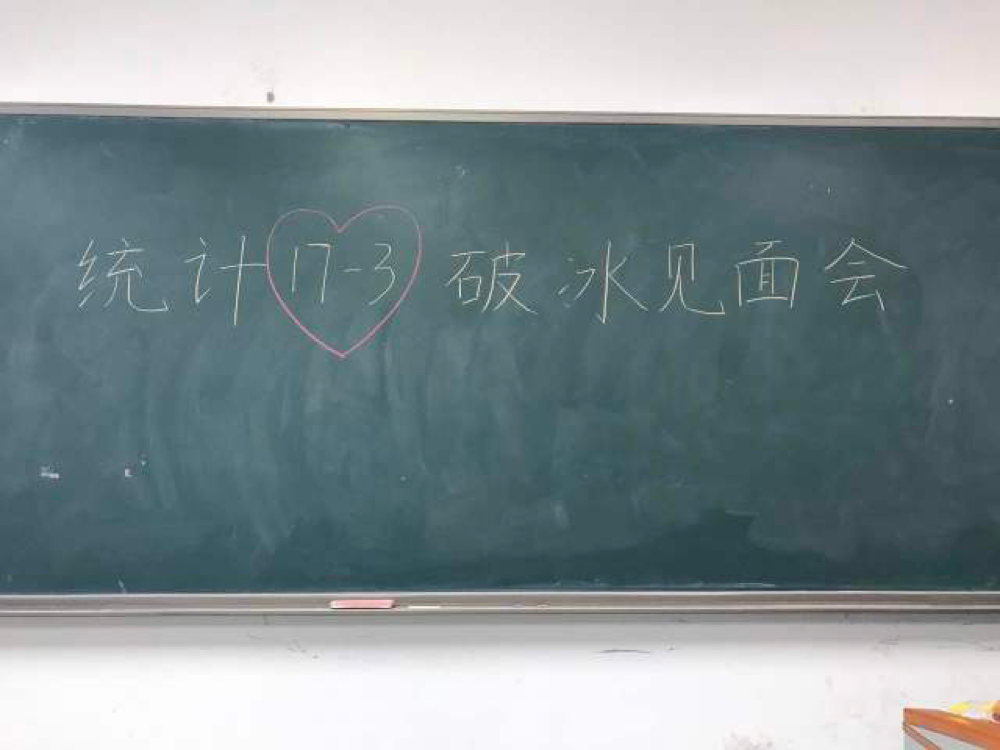 统计17-3破冰见面会